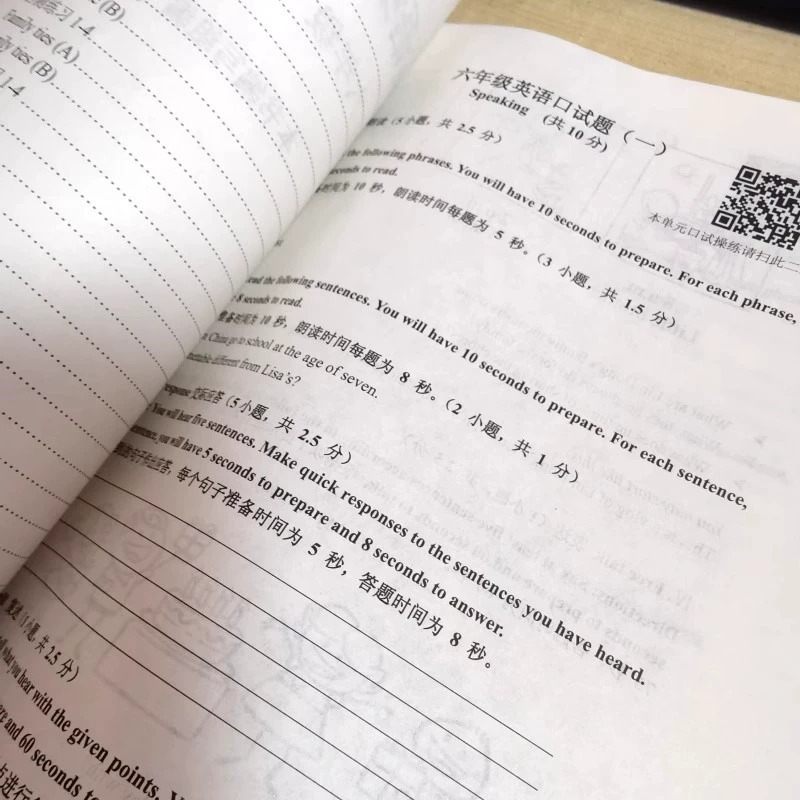 (B)
练习 1-4
family trees (A)
family trees (B)
1-4
六年级英语口试题（一）
Speaking (共 10 分)
朗读（5 小题，共 2.5 分）
the following phrases. You will have 10 seconds to prepare. For each phrase,
seconds to read.
备时间为 10 秒，朗读时间每题为 5 秒。（3 小题，共 1.5 分）
本单元口试操练请扫此二
read the following sentences. You will have 10 seconds to prepare. For each sentence,
8 seconds to read.
准备时间为 10 秒，朗读时间每题为 8 秒。（2 小题，共 1 分）
in China go to school at the age of seven.
timetable different from Lisa's?
response 交际应答（5 小题，共 2.5 分）
You will hear five sentences. Make quick responses to the sentences you have heard.
sentence, you will have 5 seconds to prepare and 8 seconds to answer.
的句子作出应答，每个句子准备时间为 5 秒，答题时间为 8 秒。
复述（1 小题，共 2.5 分）
what you hear with the given points.
and 60 seconds to
点进行